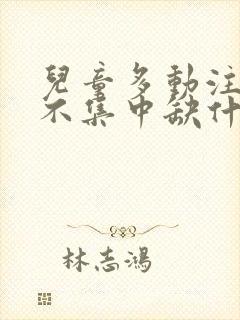 兒童多動注
不集中缺什
林志鴻